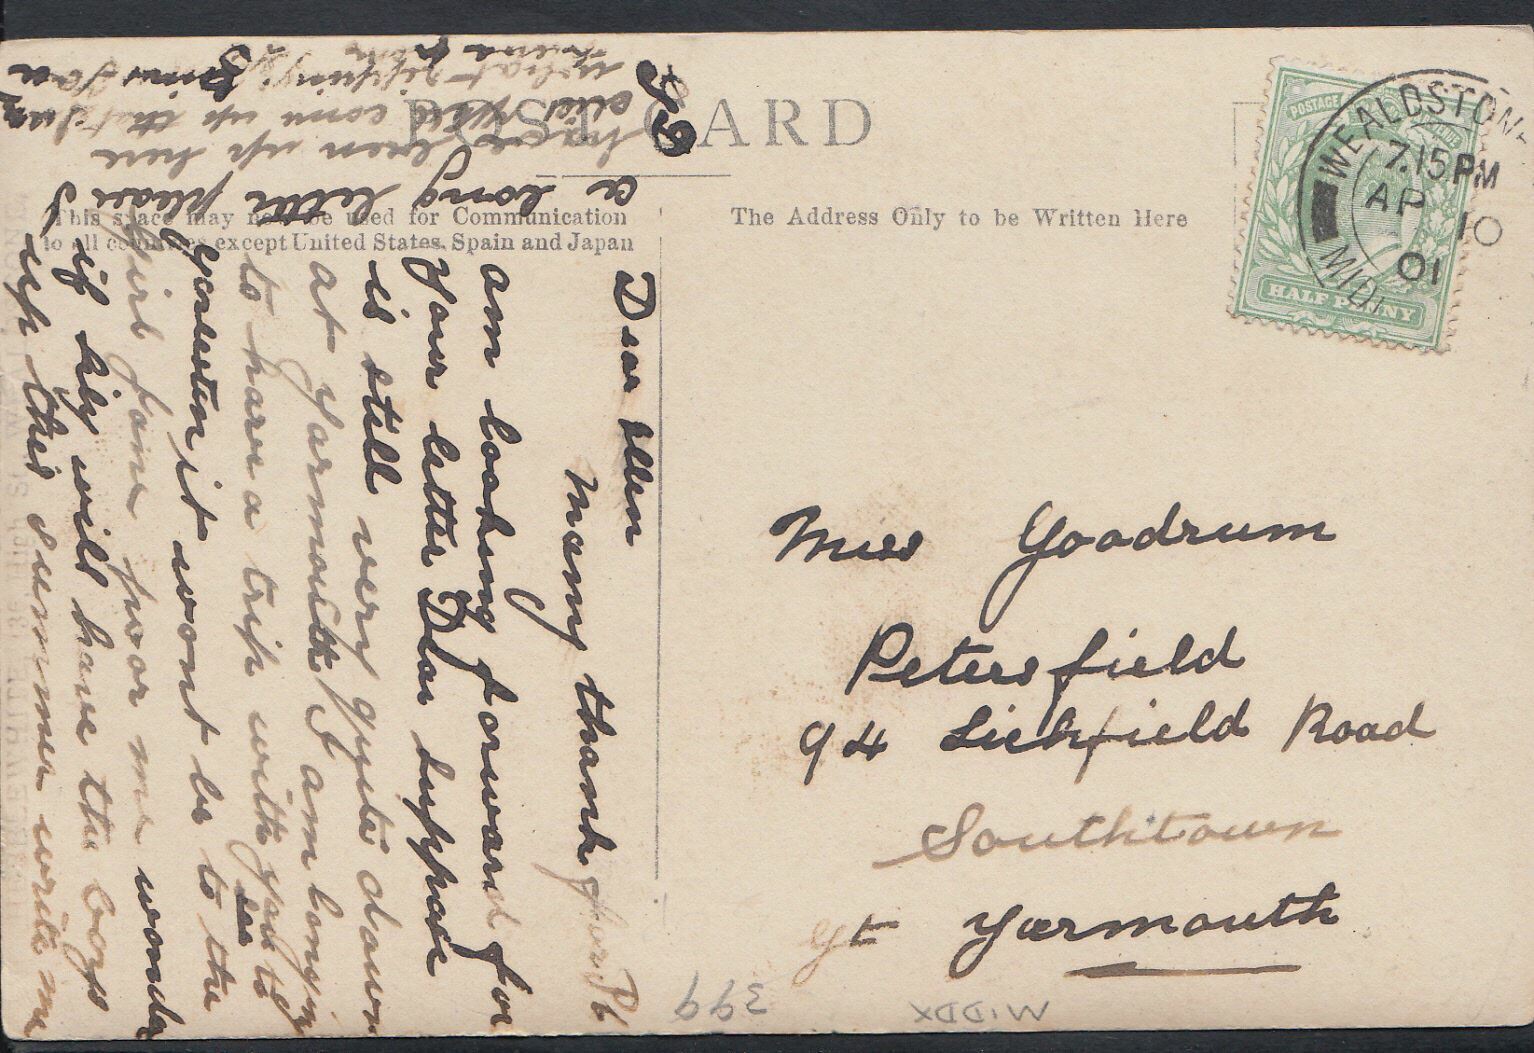 POST CARD
This space may not be used for Communication
to all countries except United States, Spain and Japan
The Address Only to be Written Here
POSTAGE
HALF PENNY
WEALDSTONE
7.15 PM
AP 10
01
MIDX
Miss Goodrum
Petersfield
94 Lichfield Road
Southtown
Gt Yarmouth
Dear Ellen
Many thank for P6
am looking forward for
your letter Dear suppose
is still very quite down
at Yarmouth I am longing
to have a trip with you to
see
it wont be to the
girl fane poor me wonder
if lily will have the boys
up this summer write me
a long letter please I
have been up here
and come up that
what
399
MIDDX